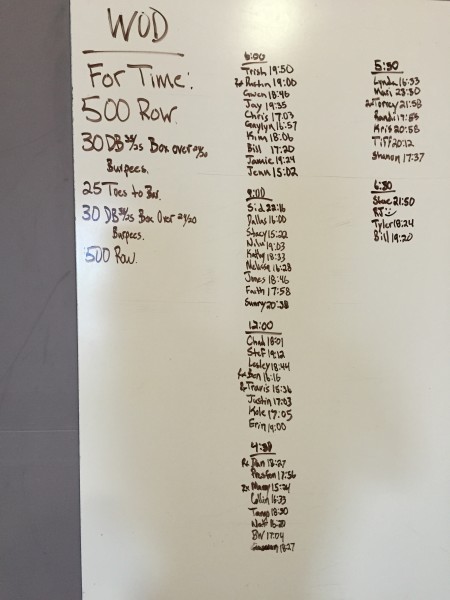 WOD
For Time:
500 Row.
30 DB 35/25 Box over 24/20
Burpees.
25 Toes to Bar.
30 DB 35/25 Box Over 24/20
Burpees.
500 Row.
6:00
Trish 19:50
Rx Dustin 19:00
Gwen 18:46
Jay 19:35
Chris 17:03
Gaylyn 16:57
Kim 18:06
Bill 17:20
Jamie 19:24
Jenn 15:02
9:00
Sid 22:16
Dallas 16:00
Stacy 15:22
19:03
Kathy 18:33
Melissa 16:28
Jones 18:46
Faith 17:58
Sunny 20:38
12:00
Chad 18:01
Stef 19:12
Lesley 18:44
Rx Ben 16:16
Travis 15:36
Justin 17:03
Kole 17:05
Erin 19:00
4:30
Rx Dan 18:27
Preston 17:56
Rx 15:24
Collin 16:33
18:30
BW 17:04
18:27
5:30
Lynda 16:33
Mari 23:30
Torrey 21:58
Randi
Kris 20:58
Tiff 20:12
Shannon 17:37
6:30
Shae 21:50
RJ
Tyler 18:24
Bill 19:20